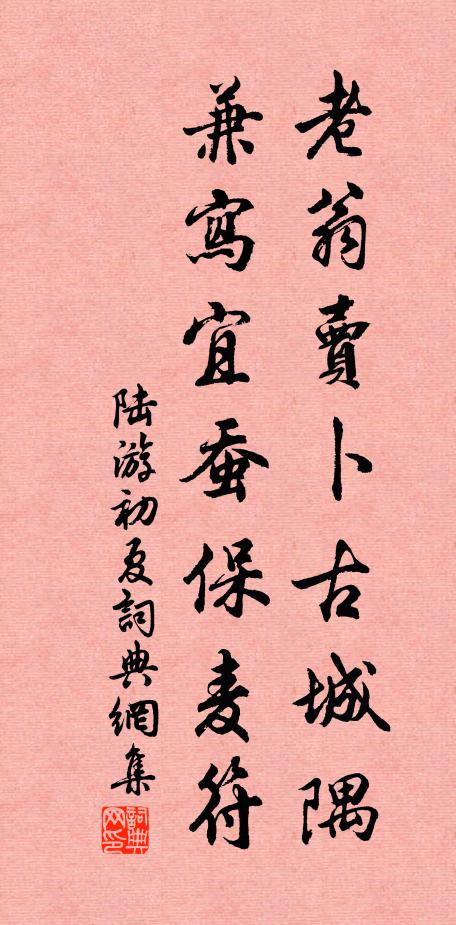 老翁賣卜古城隅
兼寫宜蚕保麦符
陆游初夏詞典網集
詞典网印